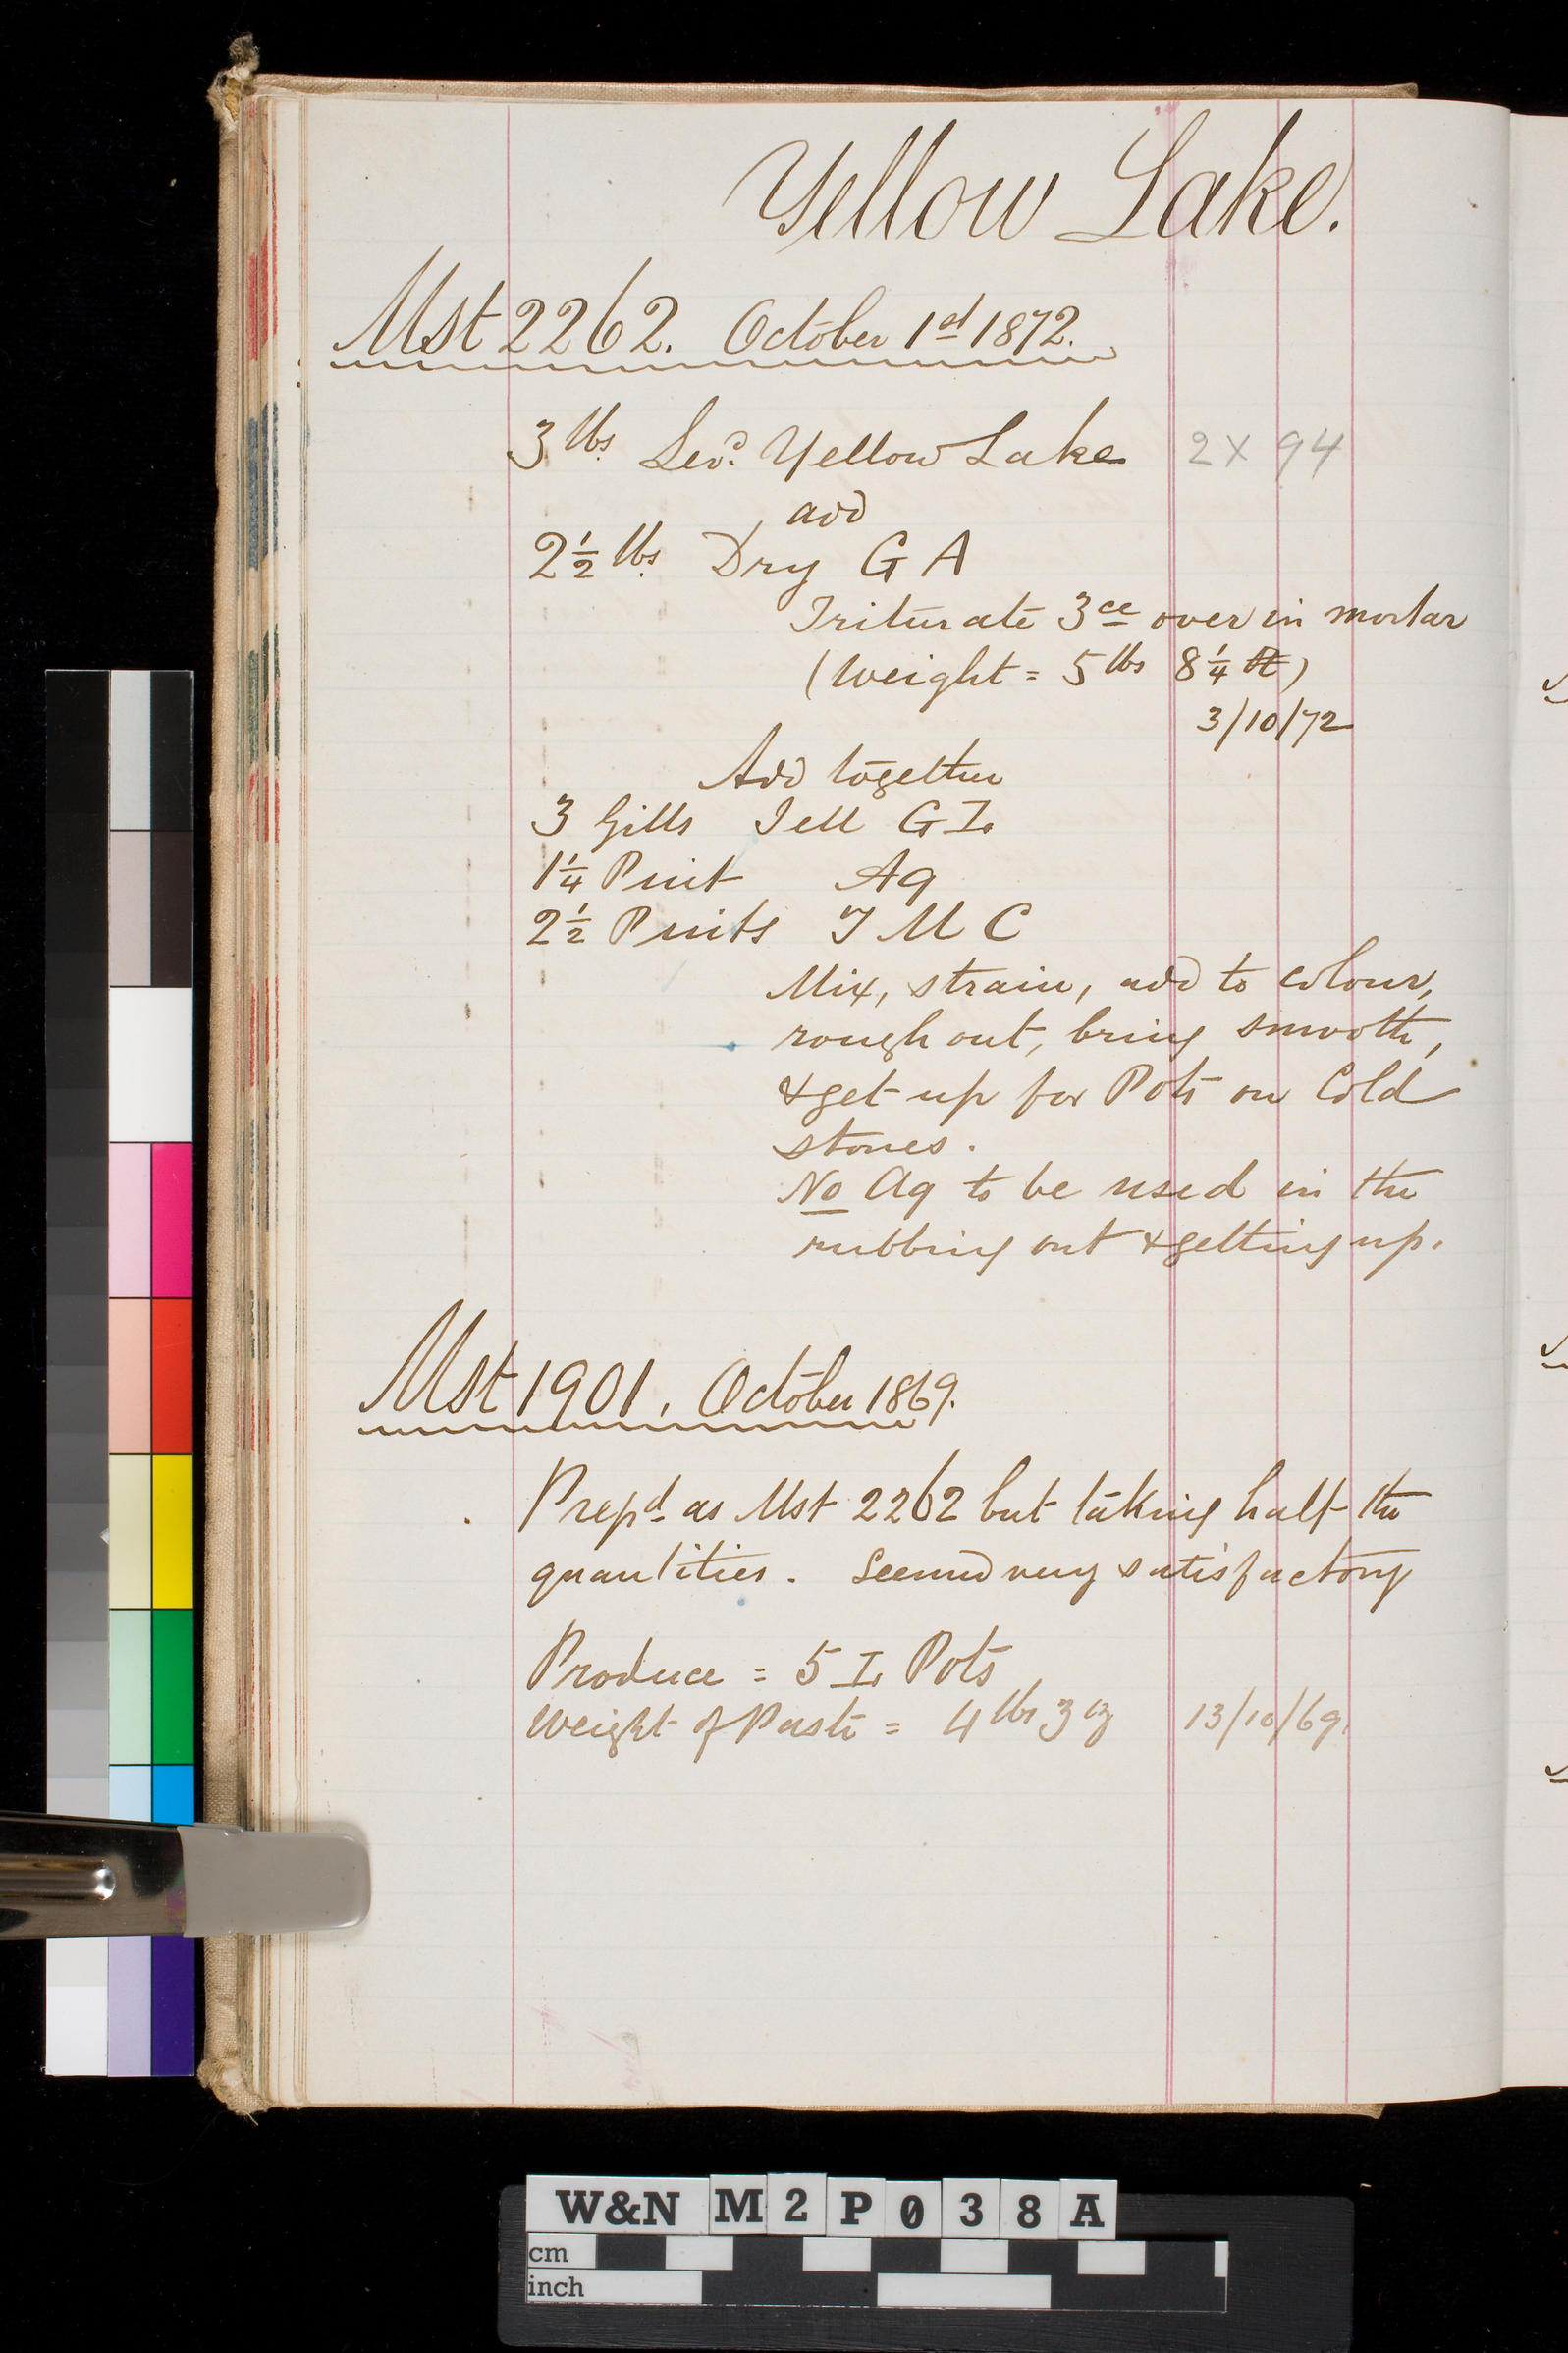 Yellow Lake.
Mst 2262. October 1st 1872.
3 lbs. Levd. Yellow Lake 2 X 94
add
2 1/2 lbs. Dry G A
Triturate 3ce over in mortar
(Weight = 5 lbs 8 1/4)
3/10/72
Add together
3 Gills Jell G I.
1 1/4 Pint Aq
2 1/2 Pints T M C
Mix, strain, add to colour,
rough out, bring smooth,
& get up for Pots on Cold
stones.
No Aq to be used in the
rubbing out & getting up.
Mst 1901. October 1869.
Prepd as Mst 2262 but taking half the
quantities. Seemed very satisfactory
Produce = 5 I. Pots
Weight of Paste = 4 lbs 3 oz 13/10/69.
W&N M2P038A
cm
inch